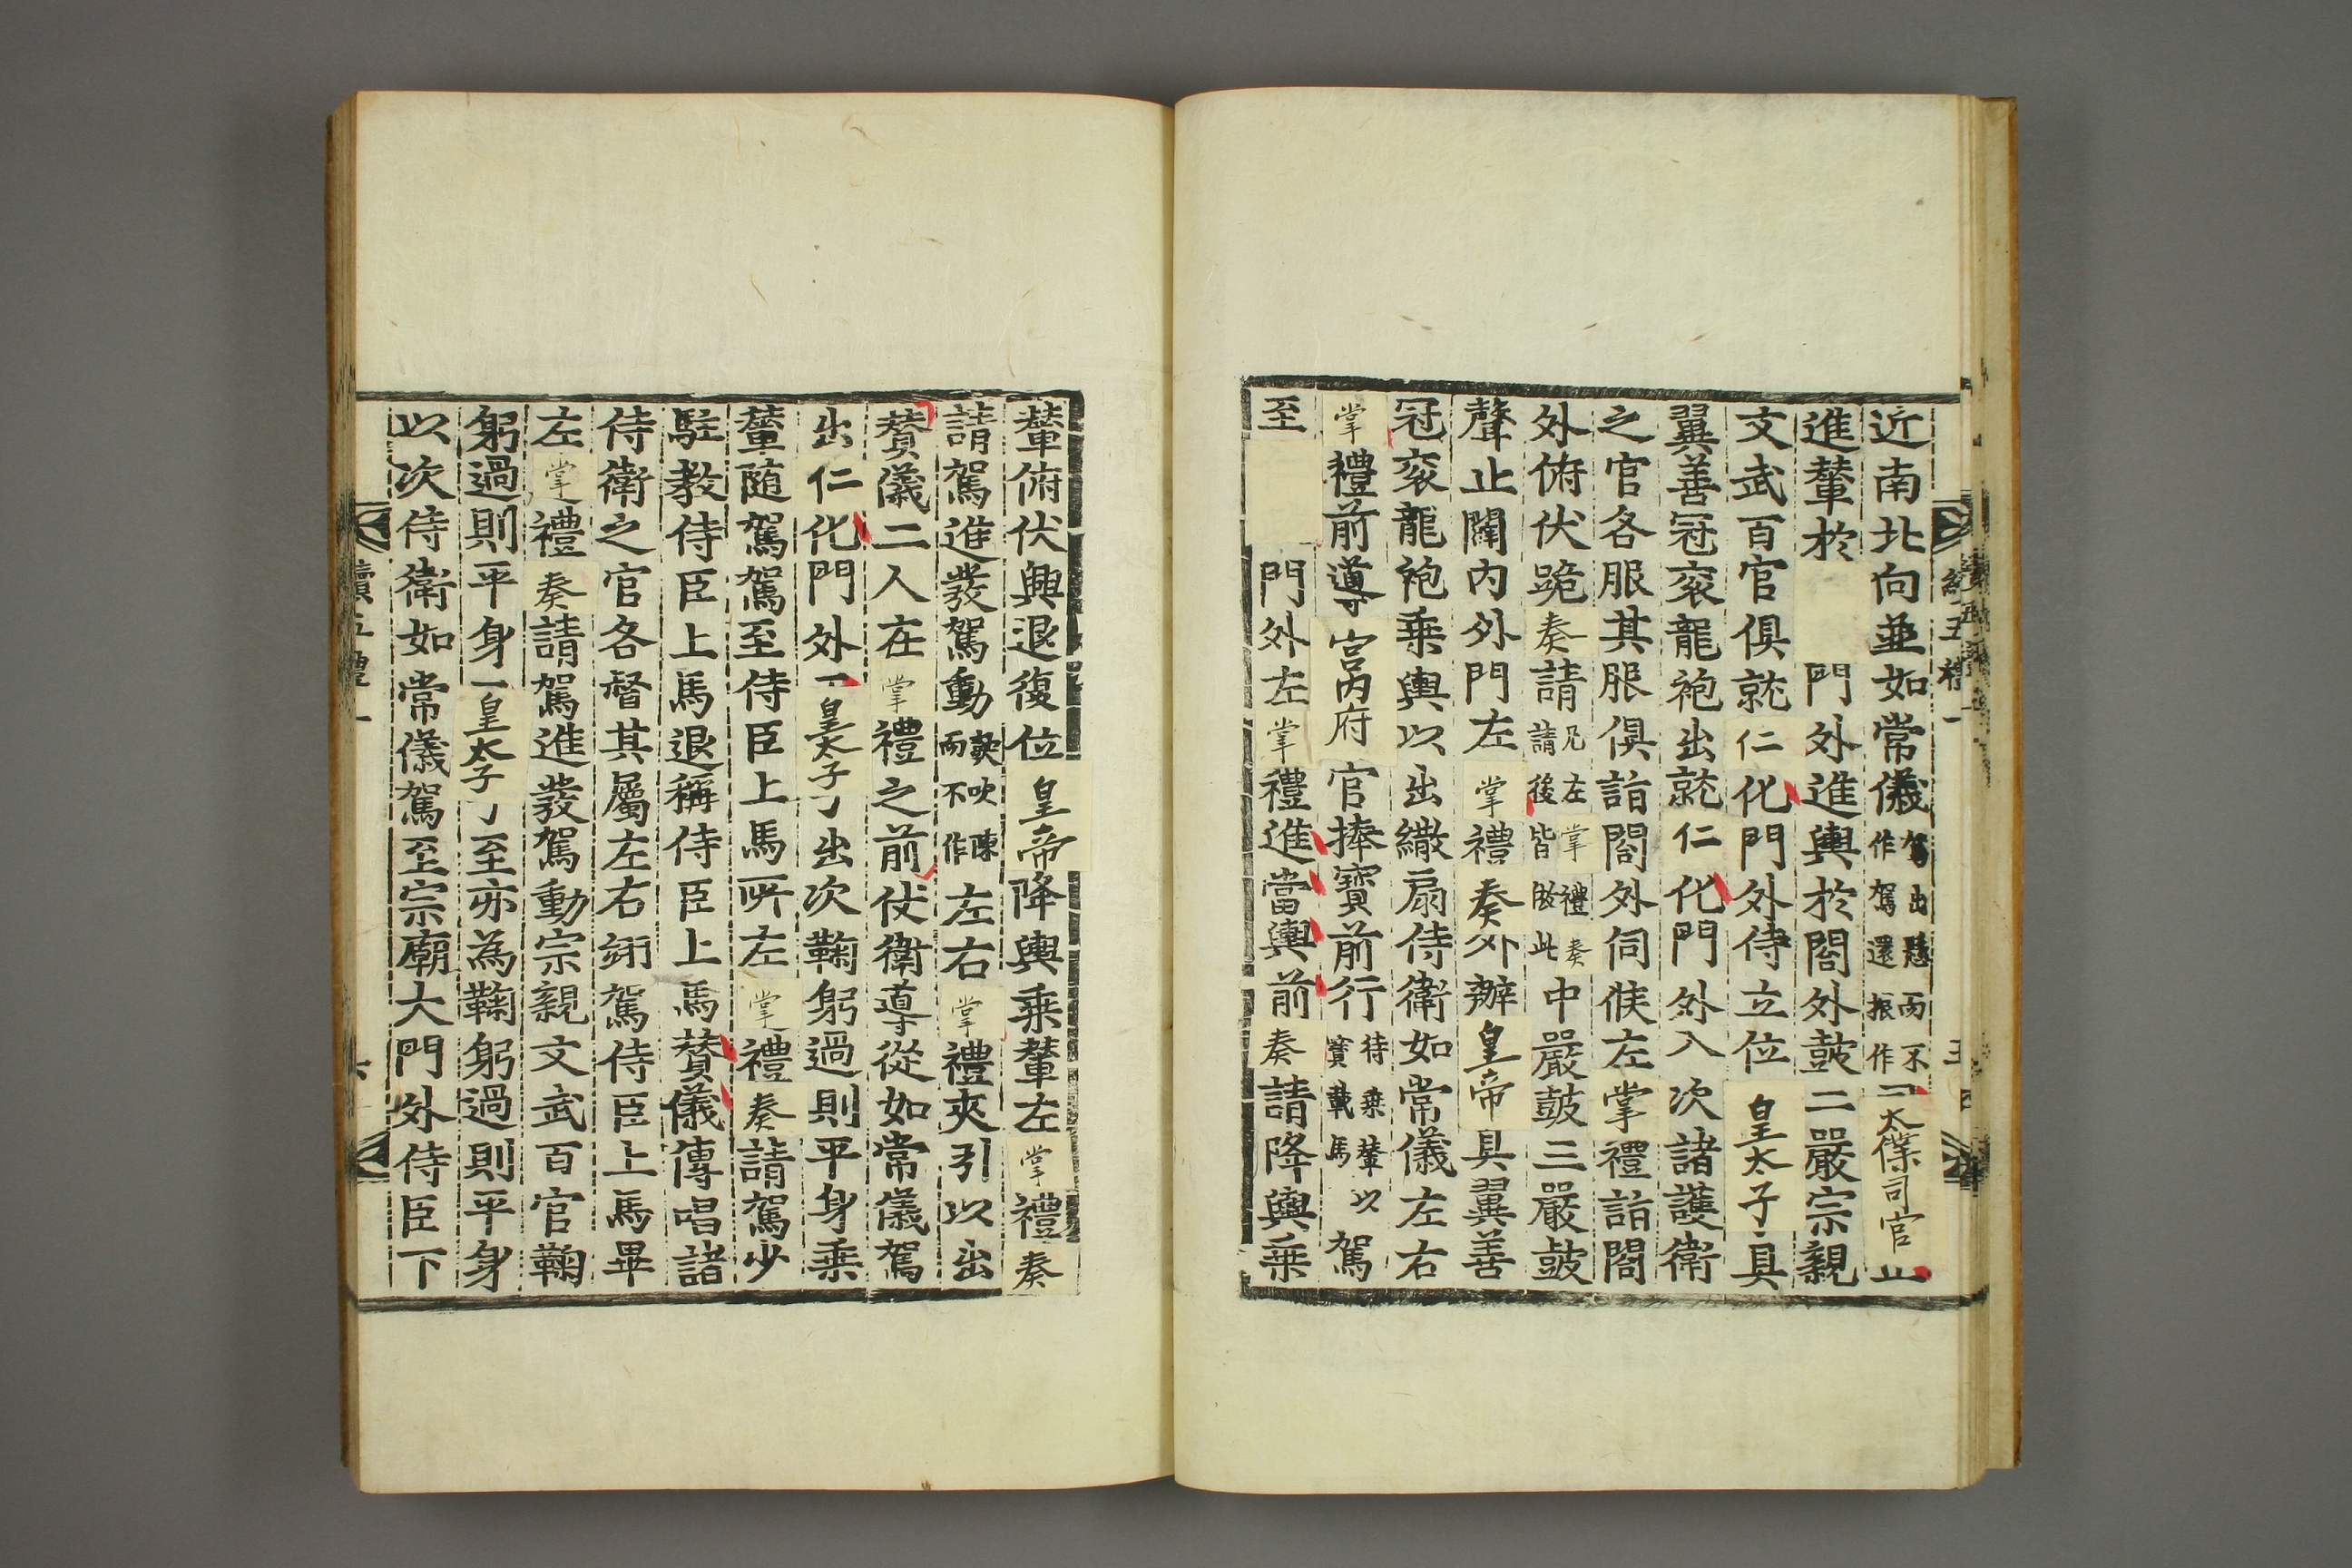 近南北向並如常儀駕出懸而不作駕還振作太僕司官
進輦於門外進輿於閤外鼓二嚴宗親
文武百官俱就仁化門外侍立位皇太子具
翼善冠袞龍袍出就仁化門外入次諸護衛
之官各服其服俱詣閤外伺候左掌禮詣閤
外俯伏跪奏請凡左掌禮奏請後皆倣此中嚴鼓三嚴鼓
聲止闢內外門左掌禮奏外辦皇帝具翼善
冠袞龍袍乗輿以出繖扇侍衛如常儀左右
掌禮前導宮內府官捧寶前行待乗輦以寶載馬駕
至門外左掌禮進當輿前奏請降輿乗
輦俯伏興退復位皇帝降輿乗輦左掌禮奏
請駕進發駕動鼓吹陳而不作左右掌禮夾引以出
賛儀二人在掌禮之前仗衛導從如常儀駕
出仁化門外皇太子出次鞠躬過則平身乗
輦随駕駕至侍臣上馬所左掌禮奏請駕少
駐敎侍臣上馬退稱侍臣上馬賛儀傳唱諸
侍衛之官各督其屬左右翊駕侍臣上馬畢
左掌禮奏請駕進發駕動宗親文武百官鞠
躬過則平身皇太子至亦為鞠躬過則平身
以次侍衛如常儀駕至宗廟大門外侍臣下